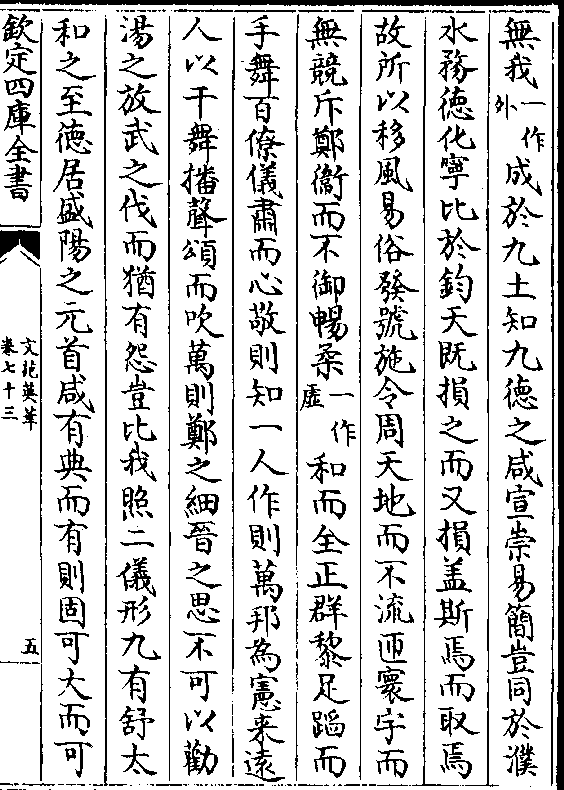 無我一作外成於九土知九德之咸宣崇易簡豈同於濮
水務德化寧比於鈞天既損之而又損盖斯焉而取焉
故所以移風易俗發號施令周天地而不流匝寰宇而
無競斥鄭衞而不御暢柔一作虛和而全正群黎足蹈而
手舞百僚儀肅而心敬則知一人作則萬邦為憲来遠
人以干舞播聲頌而吹萬則鄭之細晉之思不可以勸
湯之放武之伐而猶有怨豈比我照二儀形九有舒太
和之至德居盛陽之元首咸有典而有則固可大而可
欽定四庫全書
文苑英華
卷七十三
五